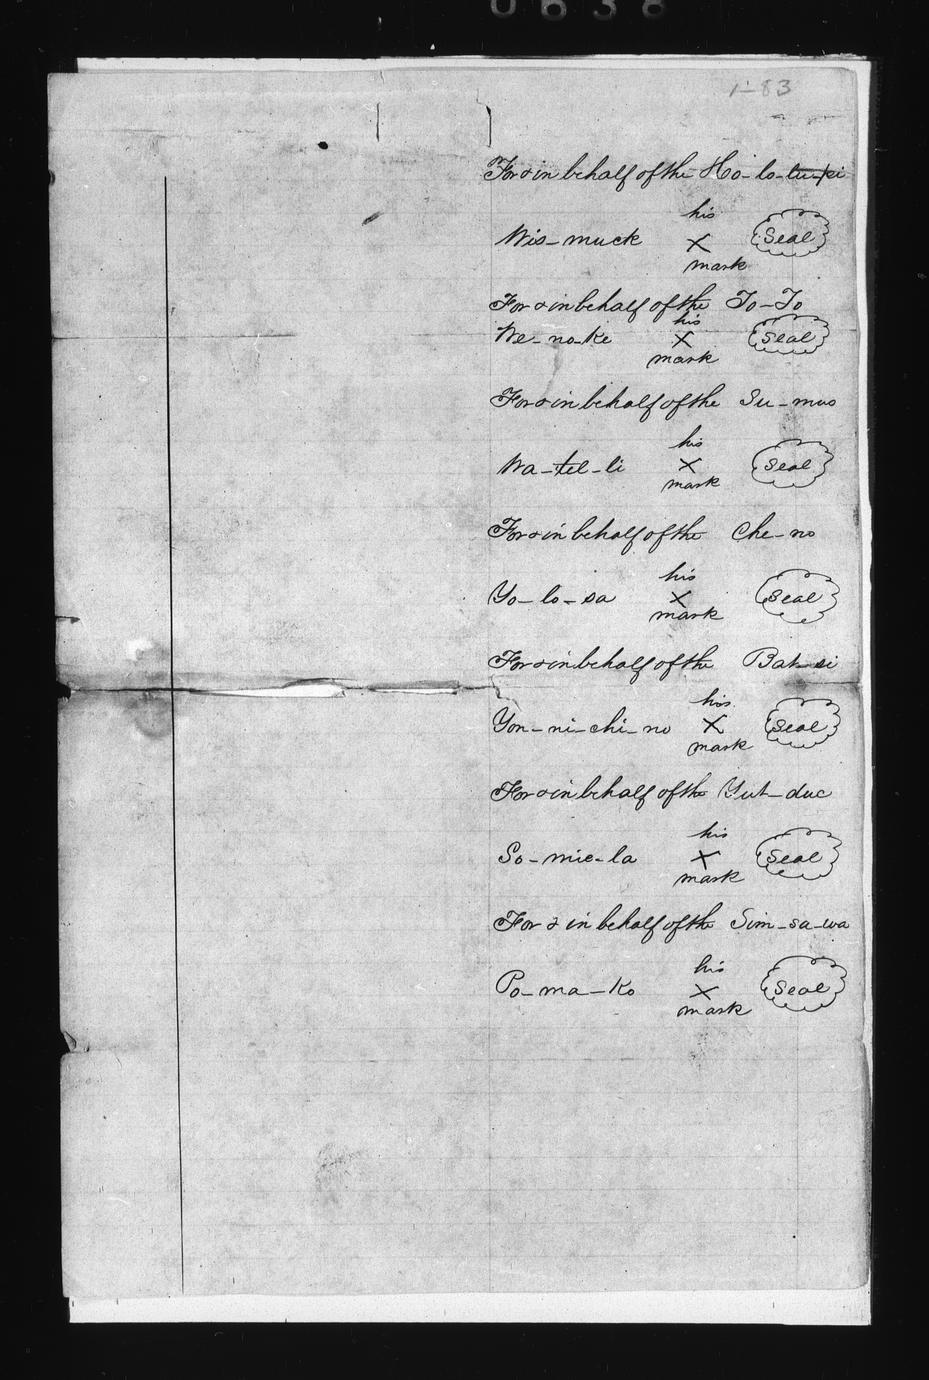 0638
1-83
For & in behalf of the Ho-lo-lu-pi
his
Wis-muck X Seal
mark
For & in behalf of the To-To
his
We-no-ke X Seal
mark
For & in behalf of the Su-mus
his
Wa-tel-li X Seal
mark
For & in behalf of the Che-no
his
Yo-lo-sa X Seal
mark
For & in behalf of the Bat-si
his
Yon-ni-chi-no X Seal
mark
For & in behalf of the Yut-duc
his
So-mie-la X Seal
mark
For & in behalf of the Sim-sa-wa
his
Po-ma-ko X Seal
mark